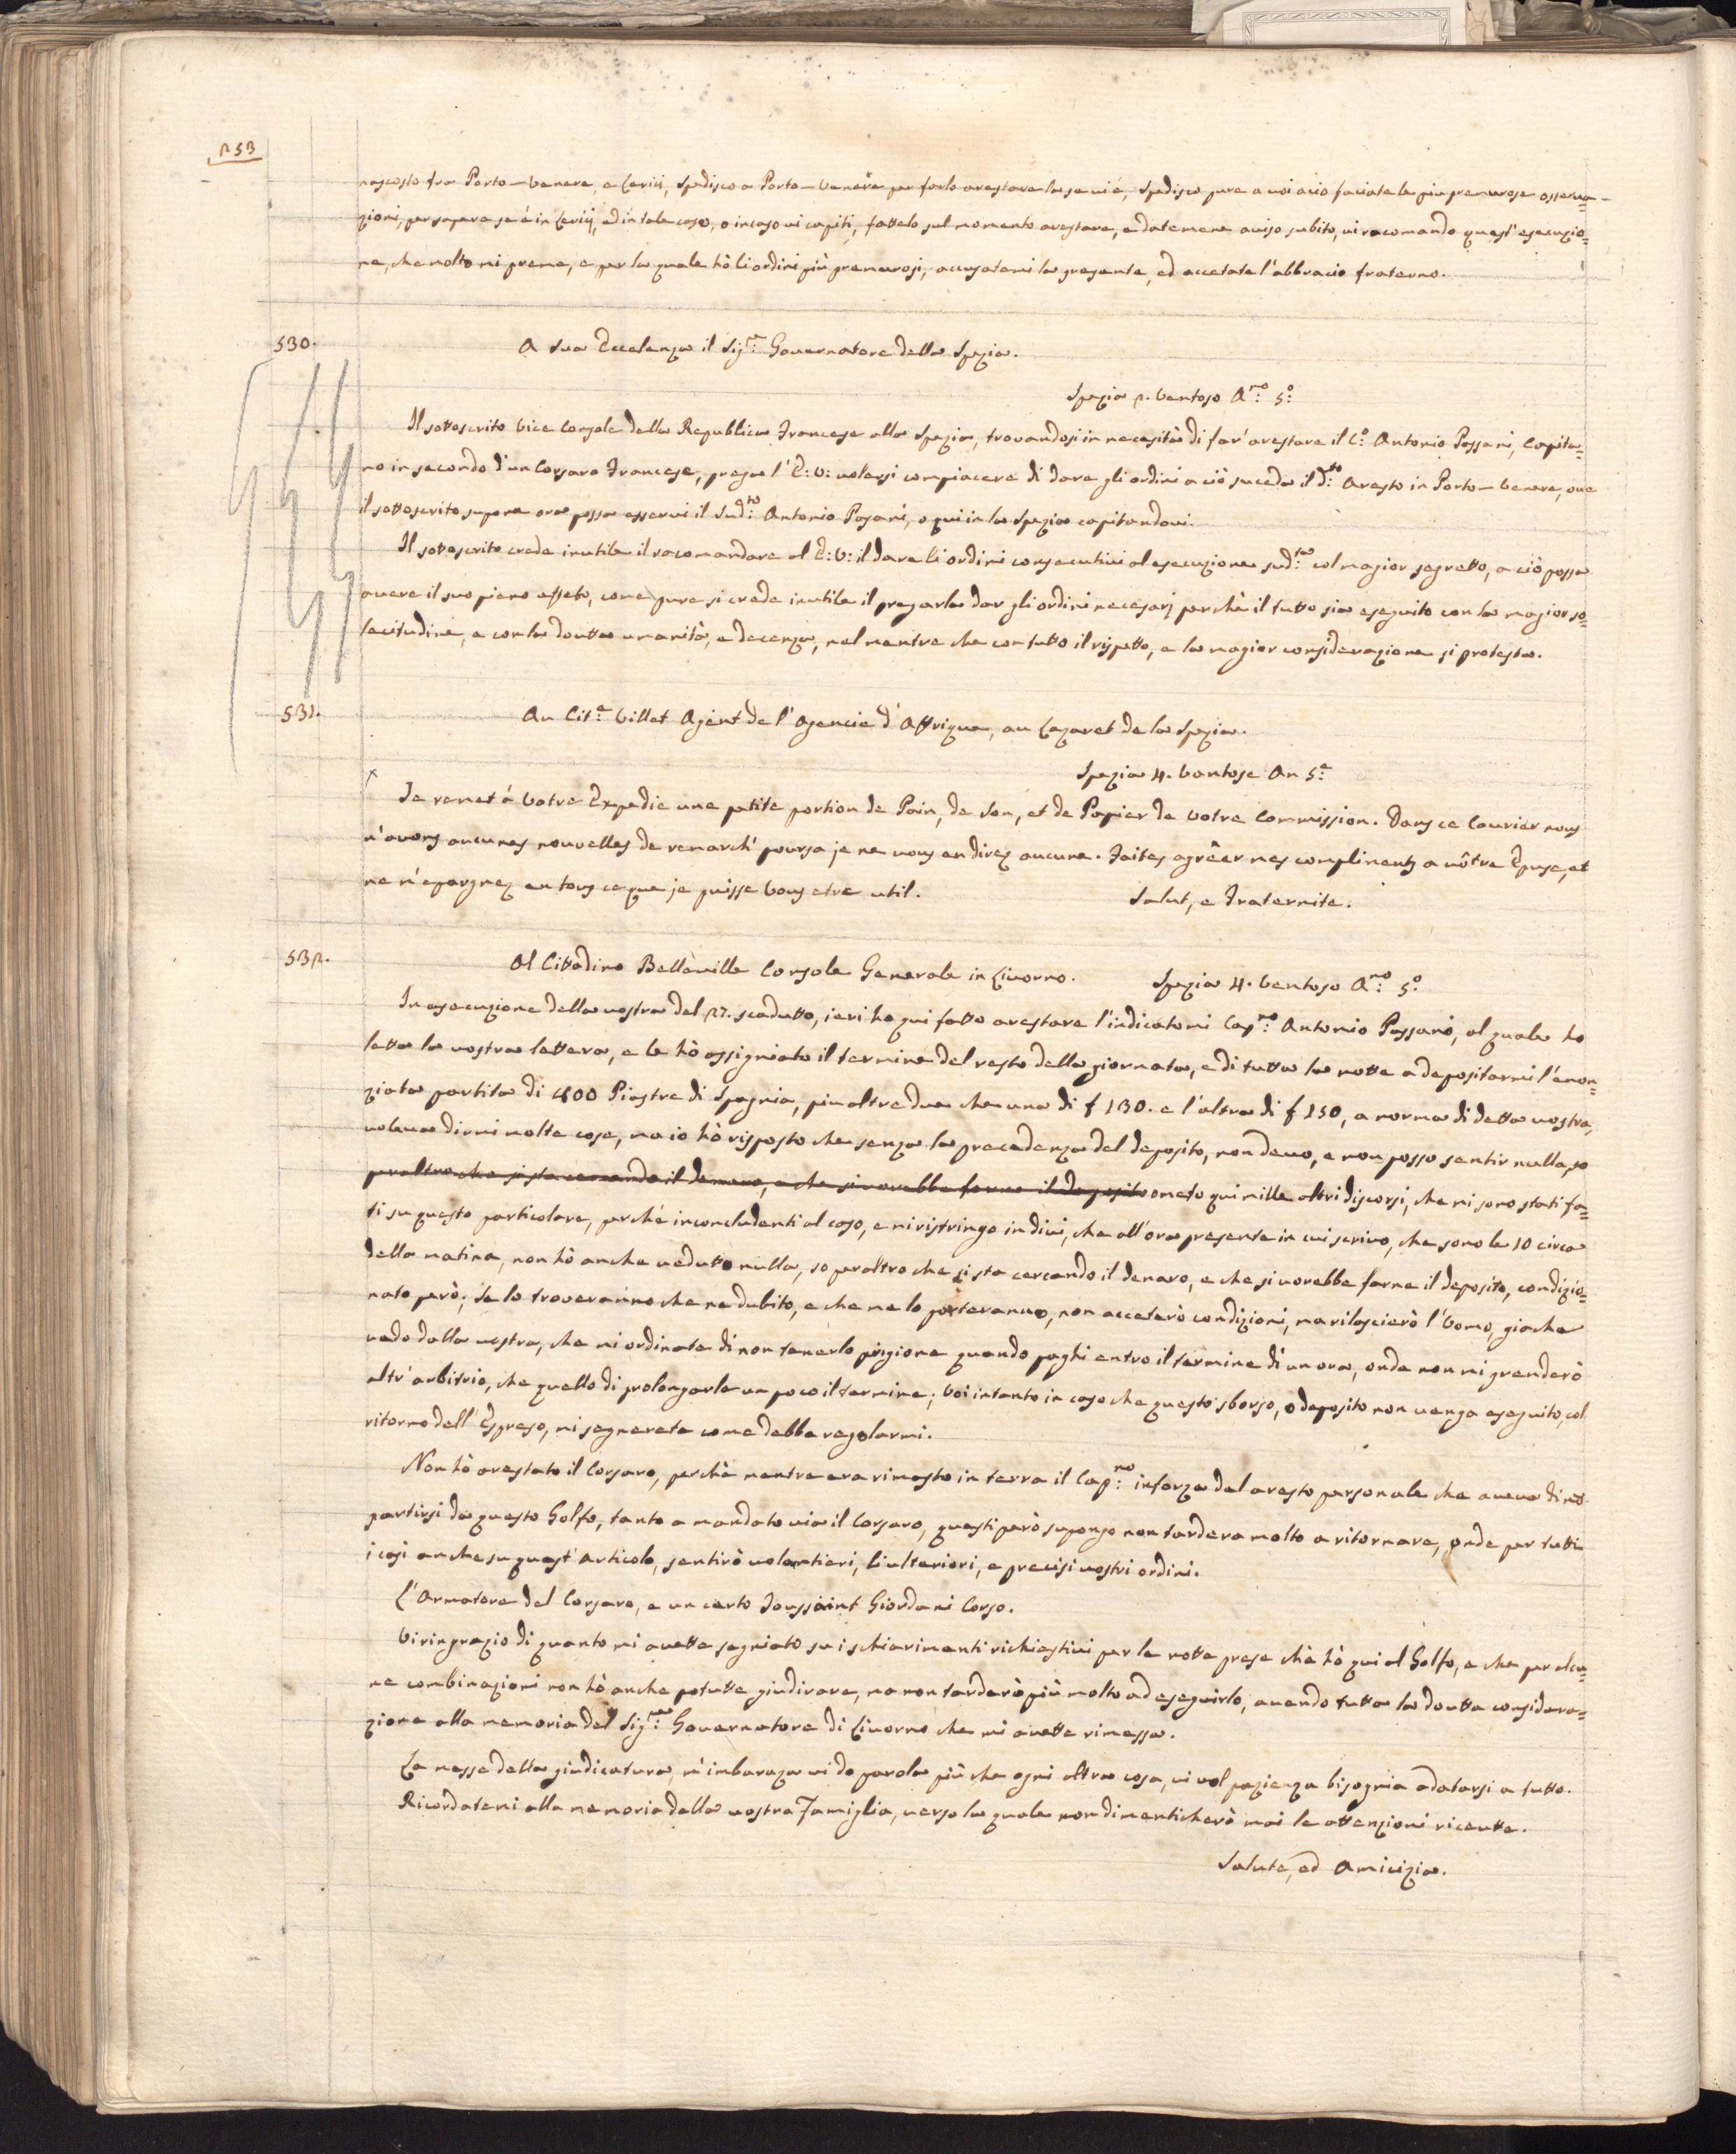 253
nascosto fra Porto-Venere, e Lerici, Spedisco a Porto-Venere per farlo arestare la se vi é, Spedisco pure a voi acio faciate le piu premurose osserva=
zioni, per sapere se é in Lerici, ed in tale caso, o in caso vi capiti, fattelo sul momento arestare, e datemene aviso subito, vi racomando quest'esecuzio=
ne, che molto mi preme, e per la quale hò li ordini più premurosi, accusatemi la presente, ed accetate l'abbracio fraterno.
530.
A Sua Eccelenza il Sig.re Governatore della Spezia.
Spezia 2. Ventoso A.no 5.o
Il sottoscrito Vice Console della Republica Francese alla Spezia, trovandosi in necesità di far' arestare il C.o Antonio Possani, Capita=
no in secondo d'un Corsaro Francese, prega l'E: V: volersi compiacere di dare gli ordini a ciò suceda il d.to Aresto in Porto-Venere, ove
il sottoscrito supone ora possa esservi il Sud.to Antonio Posani, o qui in la Spezia capitandovi.
Il sottoscrito crede inutile il racomandare al E: V: il dare li ordini consecutivi al esecuzione sud.ta col magior segretto, a ciò possa
avere il suo pieno effeto, come pure si crede inutile il pregarla dar gli ordini necesarj perchè il tutto sia eseguito con la magior so=
lecitudine, e con la doutta umanità, e decenza, nel mentre che con tutto il rispetto, e la magior considerazione si protesta.
531.
Au Cit.e Villet Agent de l'Agencie d'Affrique, au Lazaret de la Spezia.
Spezia 4. Ventose An 5.e
Je remet à Votre Expedie une petite portion de Pain, de Son, et de Papier de Votre Commission. Dans ce Courier nous
n'avons aucunes nouvelles de remarch' poursa je ne vous en direz aucune. Faites agrêer mes compliments a vôtre Epuse, et
ne m'epargnez en tous ce que je puisse Vous etre util.
Salut, e Fraternite.
532.
Al Cittadino Belleville Console Generale in Livorno.
Spezia 4. Ventoso A.no 5.o
In esecuzione della vostra del 27. scadutto, ieri ho qui fatto arestare l'indicatomi Cap.no Antonio Possani, al quale ho
letta la vostra lettera, e le hò assigniato il termine del resto della giornata, e di tutta la notte a depositarmi l'enon=
ziata partita di 400 Piastre di Spagnia, piu altre due che una di f 130. e l'altra di f 150, a norma di detta vostra,
voleva dirmi molte cose, ma io hò risposto che senza la precedenza del deposito, non devo, e non posso sentir nulla, so
peraltro che si sta cercando il denaro, e che si vorebbe farne il deposito ometo qui mille altri discorsi, che mi sono stati fa=
ti su questo particolare, perché inconcludenti al caso, e mi ristringo in dirvi, che all'ora presente in cui scrivo, che sono le 10 circa
della matina, non hò anche vedutto nulla, so peraltro che si sta cercando il denaro, e che si vorebbe farne il deposito, condizio=
nato però; se lo troveranno che ne dubito, e che me lo porteranno, non acceterò condizioni, ma rilascierò l'Uomo, giache
vedo dalla vostra, che mi ordinate di non tenerlo prigione quando paghi entro il termine d'un ora, onde non mi prenderò
altr'arbitrio, che quello di prolongarle un poco il termine; Voi intanto in caso che questo sborso, o deposito non venga eseguito, col
ritorno dell'Espreso, mi segnerete come debba regolarmi.
Non hò arestato il Corsaro, perchè mentre era rimasto in terra il Cap.no inforza del aresto personale che aveva di no
partirsi da questo Golfo, tanto a mandato via il Corsaro, questi però supongo non tardera molto a ritornare, onde per tutti
i casi anche su quest'articolo, sentirò volontieri, li ulteriori, e precisi vostri ordini.
L'Armatore del Corsaro, e un certo Toussaint Giordani Corso.
Vi ringrazio di quanto mi avette segniato su i schiarimenti richiestivi per le notte prese chè hò qui al Golfo, e che per alcu=
ne combinazioni non hò anche potutte giudicare, ma non tarderò più molto ad eseguirlo, avendo tutta la doutta considera=
zione alla memoria del Sig.re Governatore di Livorno che mi avette rimessa.
La messe della giudicatura, m'imbaraza vi do parola più che ogni altra cosa, vi vol pazienza bisognia adatarsi a tutto.
Ricordatemi alla memoria della vostra Famiglia, verso la quale non dimenticherò mai le attenzioni ricevutte.
Salute, ed Amicizia.